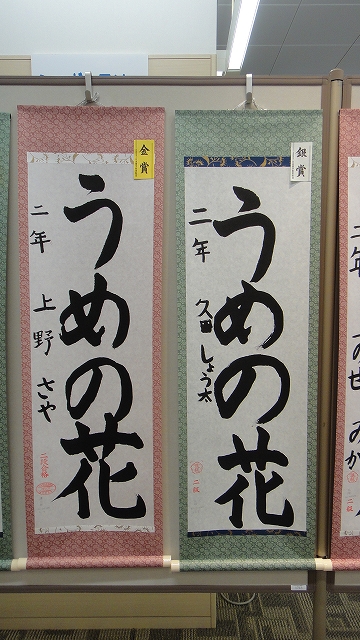 金賞
うめの花
二年 上野さや
銀賞
うめの花
二年 久田しょう太
二級
二年